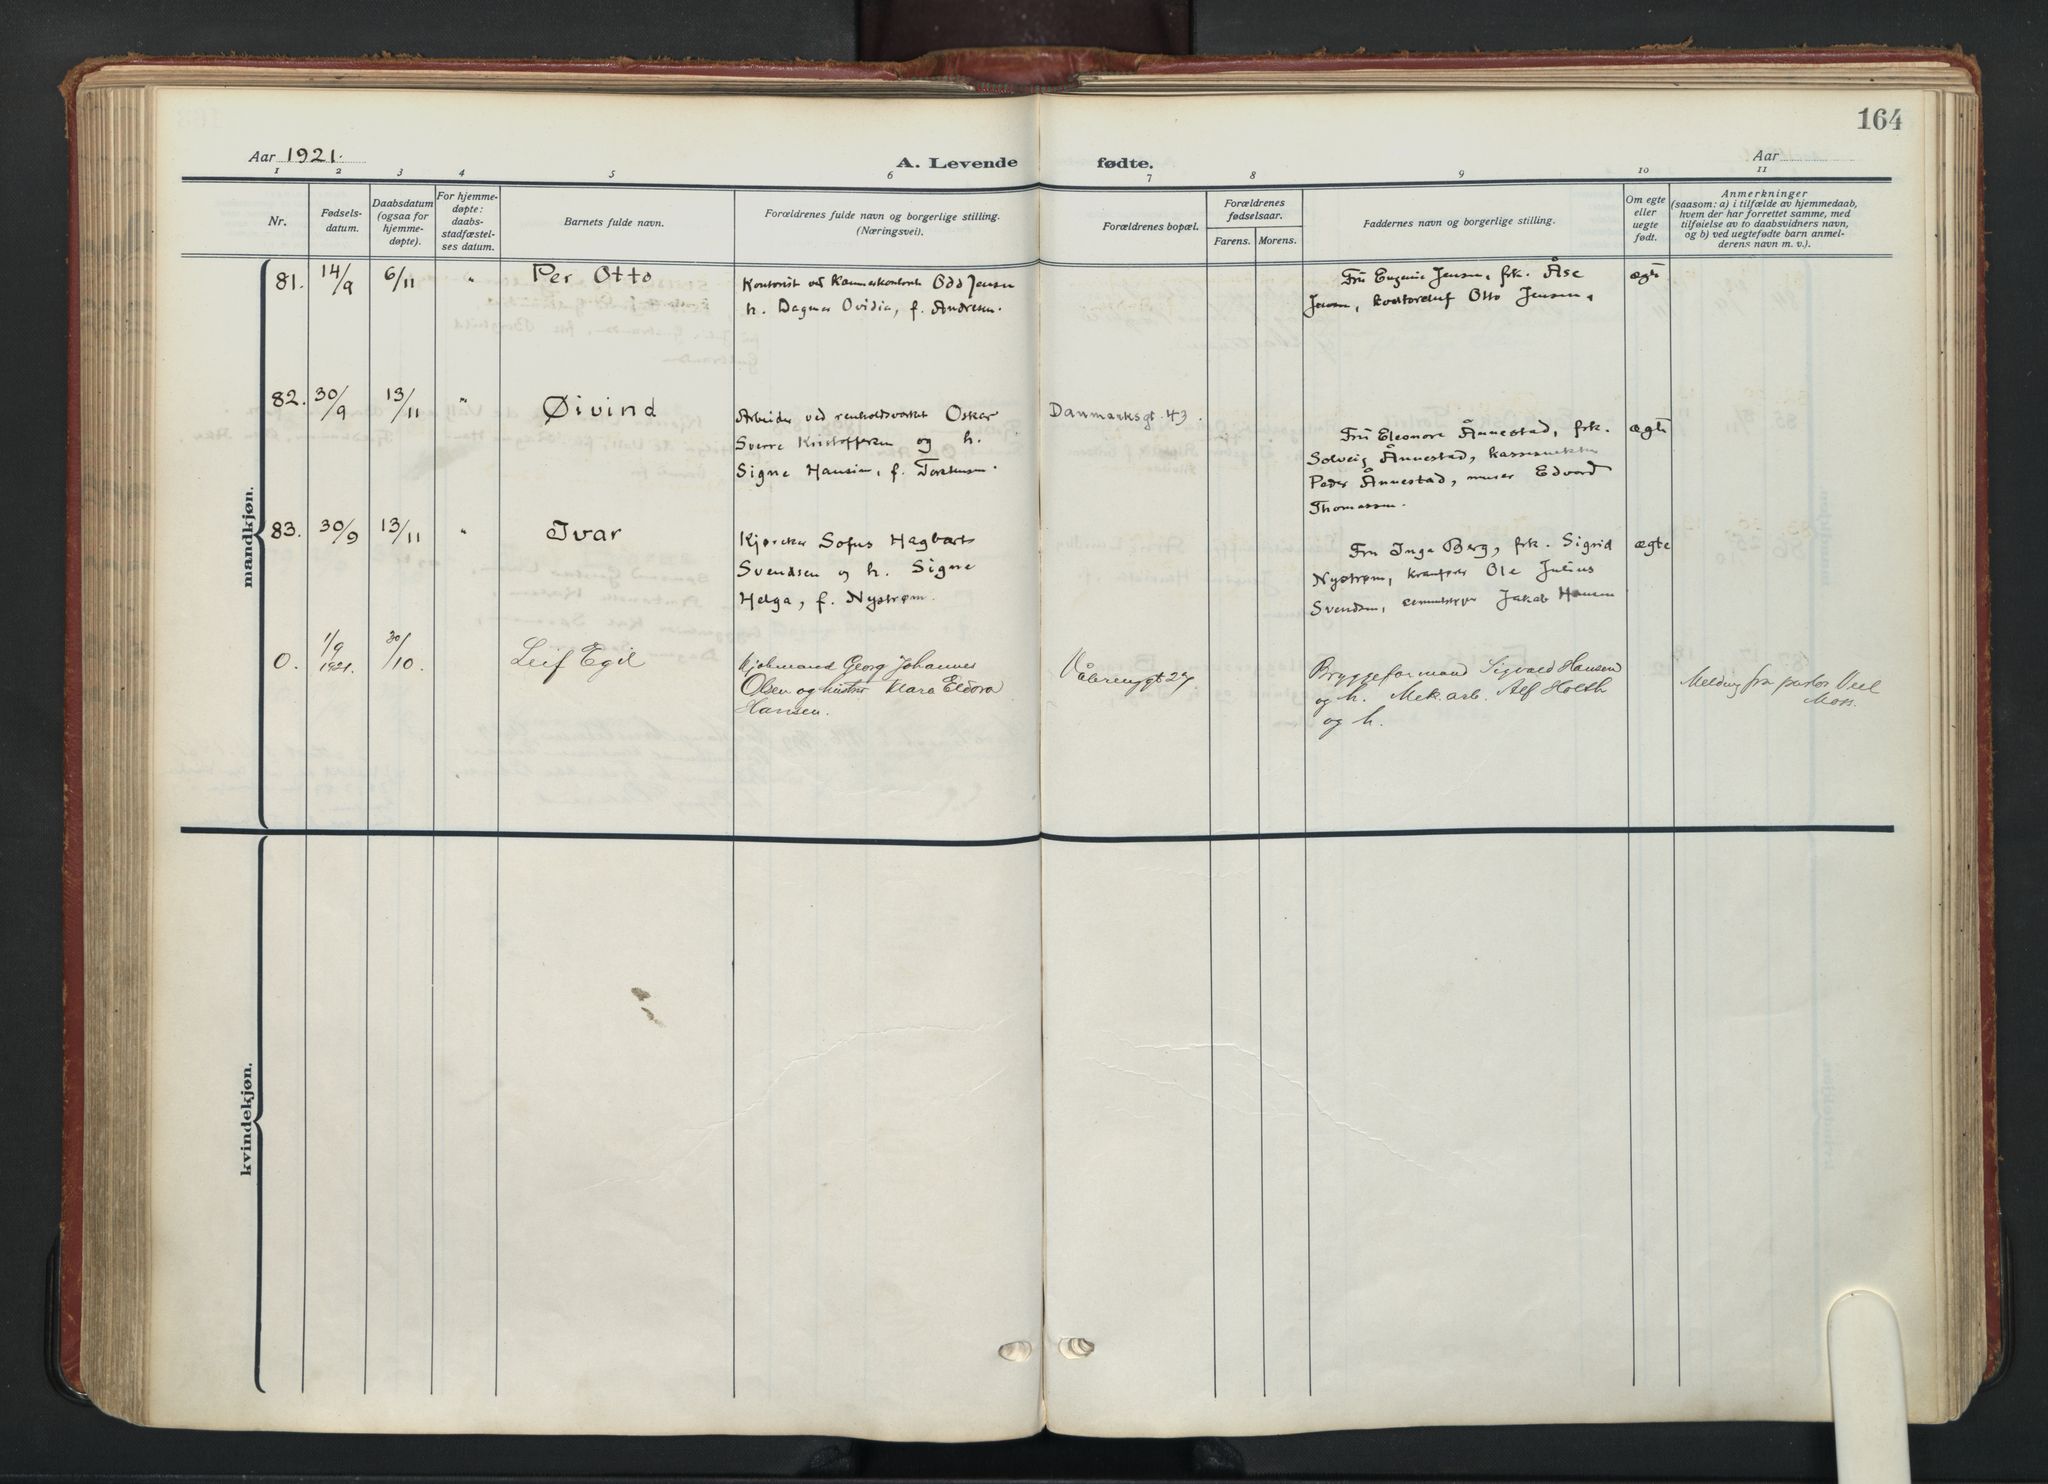 164
Aar 1921.
A. Levende fødte.
Aar
1 2 3 4 5 6 7 8 9 10 11
Nr.
Fødsels-
datum.
Daabsdatum
(ogsaa for
hjemme-
døpte).
For hjemme-
døpte:
daabs-
stadfæstel-
ses datum.
Barnets fulde navn.
Forældrenes fulde navn og borgerlige stilling.
(Næringsvei).
Forældrenes bopæl.
Forældrenes
fødselsaar.
Farens. Morens.
Faddernes navn og borgerlige stilling.
Om egte
eller
uegte
født.
Anmerkninger
(saasom: a) i tilfælde av hjemmedaab,
hvem der har forrettet samme, med
tilføielse av to daabsvidners navn,
og b) ved uegtefødte barn anmel-
derens navn m. v.).
mandkjøn.
81. 14/9 6/11 " Per Otto
Kontorist ved Kammerkontoret Odd Jensen
h. Dagmar Ovidia, f. Andresen.
Fru Eugenie Jensen, frk. Åse
Jensen, Otto Jensen,
ægte
82. 30/9 13/11 " Øivind
Arbeider ved renholdsverket Oskar
Sverre Kristoffersen og h.
Signe Hansine, f. Torstensen.
Danmarksgt. 43.
Fru Eleonore Ånnestad, frk.
Solveig Ånnestad,
Peder Ånnestad, murer Edvard
Thomassen.
ægte
83. 30/9 13/11 " Ivar
Kjøreker Sofus Hagbart
Svendsen og h. Signe
Helga, f. Nystrøm.
Fru Inga Berg, frk. Sigrid
Nystrøm, kranfører Ole Julius
Svendsen, Jakob Hansen
ægte
0. 1/9 1921. 30/10. Leif Egil
Kjøbmand Georg Johannes
Olsen og hustru Klara Eldora
Hansen.
Vålerenggt 27
Bryggeformand Sigvald Hansen
og h. Mek. arb. Alf Holth
og h.
Melding fra pastor Veel
Moss.
kvindekjøn.